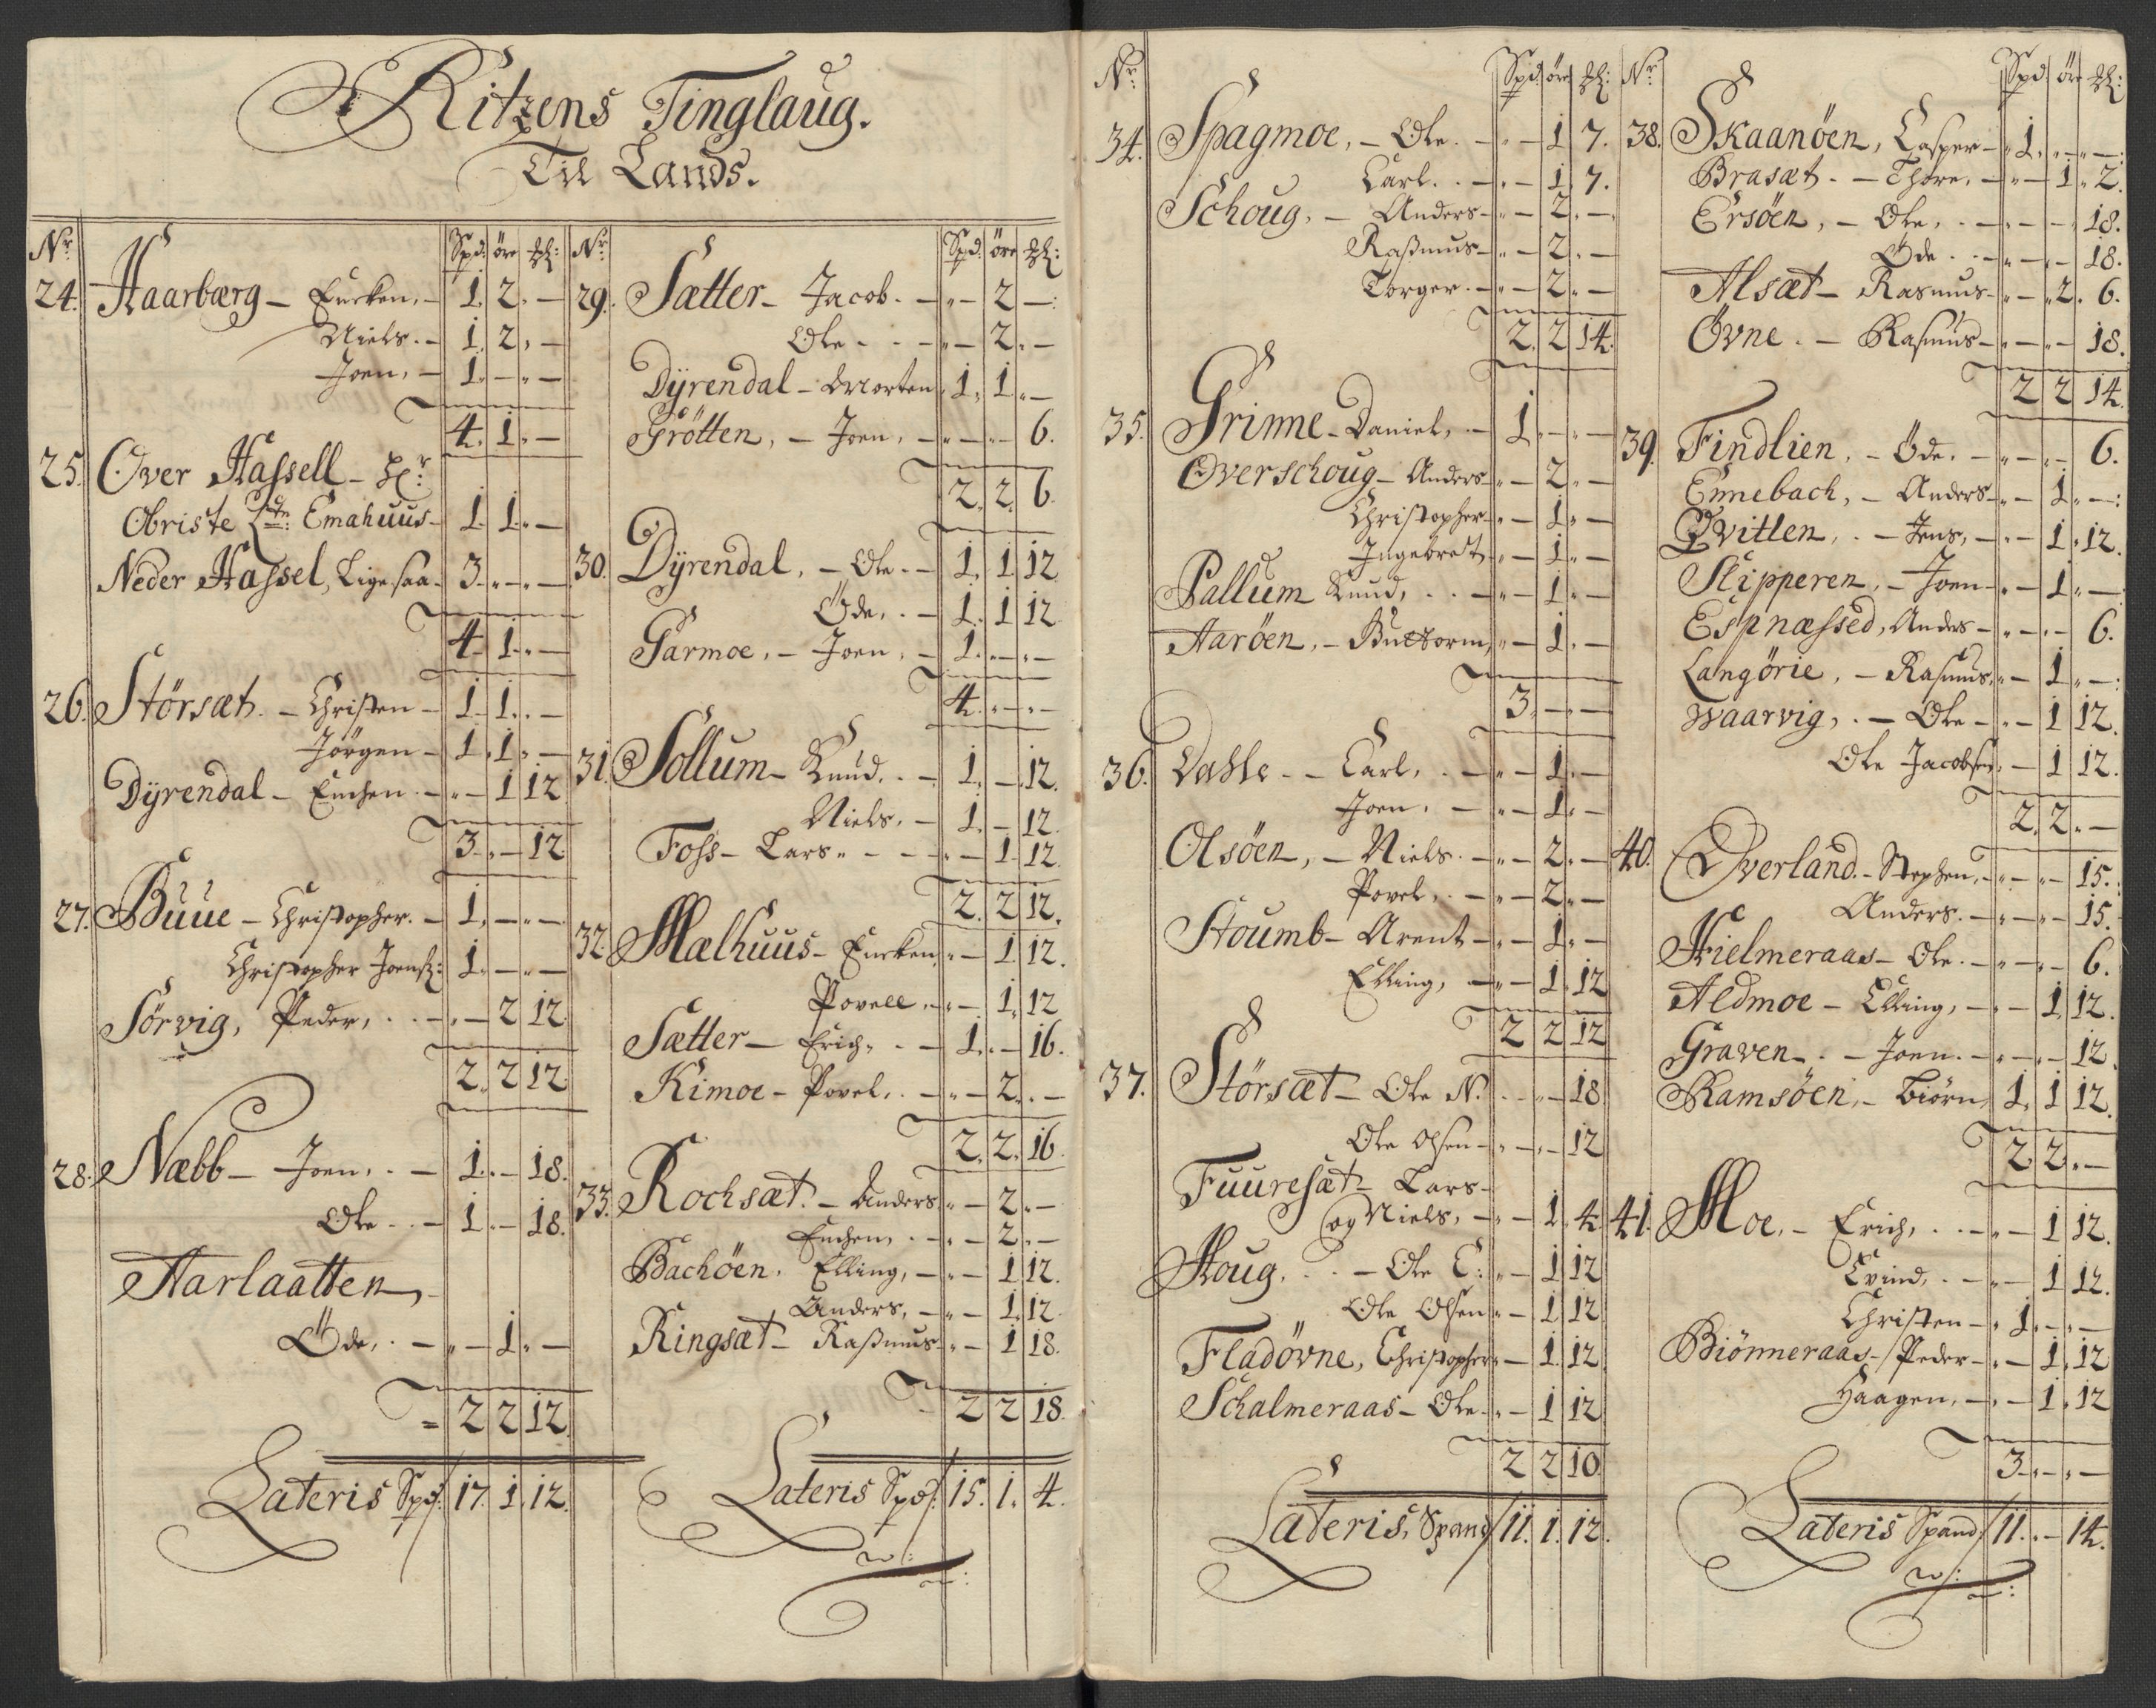 Ritzens Tinglaug.
Til Lands.
Nr Spd: öre
24. Haarbærg - - 1. 2. -
Niels. - 1. 2. -
Joen, - 1. - . -
4. 1. -
25. Over Hassell - Hr:
Obriste Emahuus - 1. 1. -
Neder Hassel, Ligesaa - 3. - . -
4. 1. -
26. Störsæt. - Christen - 1. 1. -
Jörgen - 1. 1. -
Dÿrendal - - 1 12
3. - 12
27. Buue - Christopher. - 1. - . -
Christopher Joens: 1. - . -
Sörvig, Peder, . . - . - 2 12
2. 2 12
28. Næbb - Joen. . - 1. - 18.
Ole . . - 1. - 18.
Harlaatten,
Öde, . - . - 1. -
2 2 12
Lateris Spd: 17. 1. 12.
Nr Spd. öre
29. Sætter - Jacob. - . - 2 - :
Ole - . - . - 2. -
Dÿrendal - Morten. 1. 1. -
Grötten, - Joen, - . - . - 6.
2. 2. 6
30. Dÿrendal, - Ole. - 1. 1 12
Öde, . - 1. 1 12
Garmoe, - Joen, - 1. - . -
4. - . -
31. Sollum - Knud. . - 1. - 12.
Niels. - 1. - 12
Foss - Lars. - - . - 1 12
2. 2 12.
32. Mælhuus - . - 1 12.
Povell. - . - 1. 12
Sætter - Erich. . - 1. - 16.
Kimoe - Povel. . - . - 2. -
2. 2. 16
33. Rochsæt. - Anders. . - 2. -
. - . - 2. -
Bachöen. Elling, - . - 1 12.
Anders, - . - 1. 12.
Ringsæt - Rasmus - . - 1 18.
2 2 18.
Lateris Spd: 15. 1. 4.
Nr Spd öre
34. Spagmoe, - Ole. - . - 1 7.
Carl. . - . - 1. 7.
Schoug, - Anders - . - 2. -
Rasmus - . - 2. -
Torger. - . - 2. -
2. 2 14.
35. Grinne - Daniel, . - 1. - . -
Overschoug - Anders - . - 2. -
Christopher - . - 1. -
Ingebret - . - 1. -
Pallum Knud, . . - . - 1. -
Aaröen, - Guttorm, . - 1. -
3. - . -
36. Dahle - - Carl, . - . - 1. -
Joen. - . - 1. -
Olsöen, - Niels. - . - 2. -
Povel, . - . - 2. -
Stoumb - Arent - . - 1. -
Elling, - . - 1. 12
2 2 12
37. Störsæt - Ole N. . - . - 18
Ole Olsen - . - . - 12
Fuuresæt - Lars -
og Niels, - . - 1. 4.
Houg, . . - Ole E: . - 1 12
Ole Olsen . - 1 12
Fladövne, Christopher . - 1. 12
Schalmeraas - Ole . - 1 12
2 2 10
Lateris, Spand 11. 1. 12.
Nr Spd öre
38. Skaanöen, Casper - . 1. . - . - :
Brasæt. - Thore, - . - 1. 2.
Ersöen, - Ole, . . - . - . 18.
Öde . . - . - . 18.
Alsæt - Rasmus - . - 2. 6.
Övne. - Rasmus - . - . - 18.
2 2 14.
39. Findlien, - Öde. - . - . - 6.
Ennebach, - Anders - . - 1. - :
Qvitlen, . - Jens, - . - 1. 12.
Slipperen, - Joen - . - 1. -
Espnæssed, Anders - . - . - 6.
Langörie, - Rasmus, . - 1. - :
Waarvig, . - Ole - . - 1 12.
Ole Jacobsen, - 1 12.
2. 2. -
40. Overland. - Stephen, - . - . - 15.
Anders. - . - . - 15.
Hielmeraas - Ole. - . - . - 6.
Aldmoe - Elling, - . - 1. 12.
Graven - . - Joen. - . - . - 12.
Ramsöen, - Biörn, 1. 1 12.
2 2. -
41. Moe, - Erich, . . - . - 1 12.
Evind, . - . - 1 12.
Christen - . 1. - . -
Biönneraas - Peder - . - 1. 12
Haagen, - . - 1. 12
3. - . -
Lateris Spand 11. . - 14.